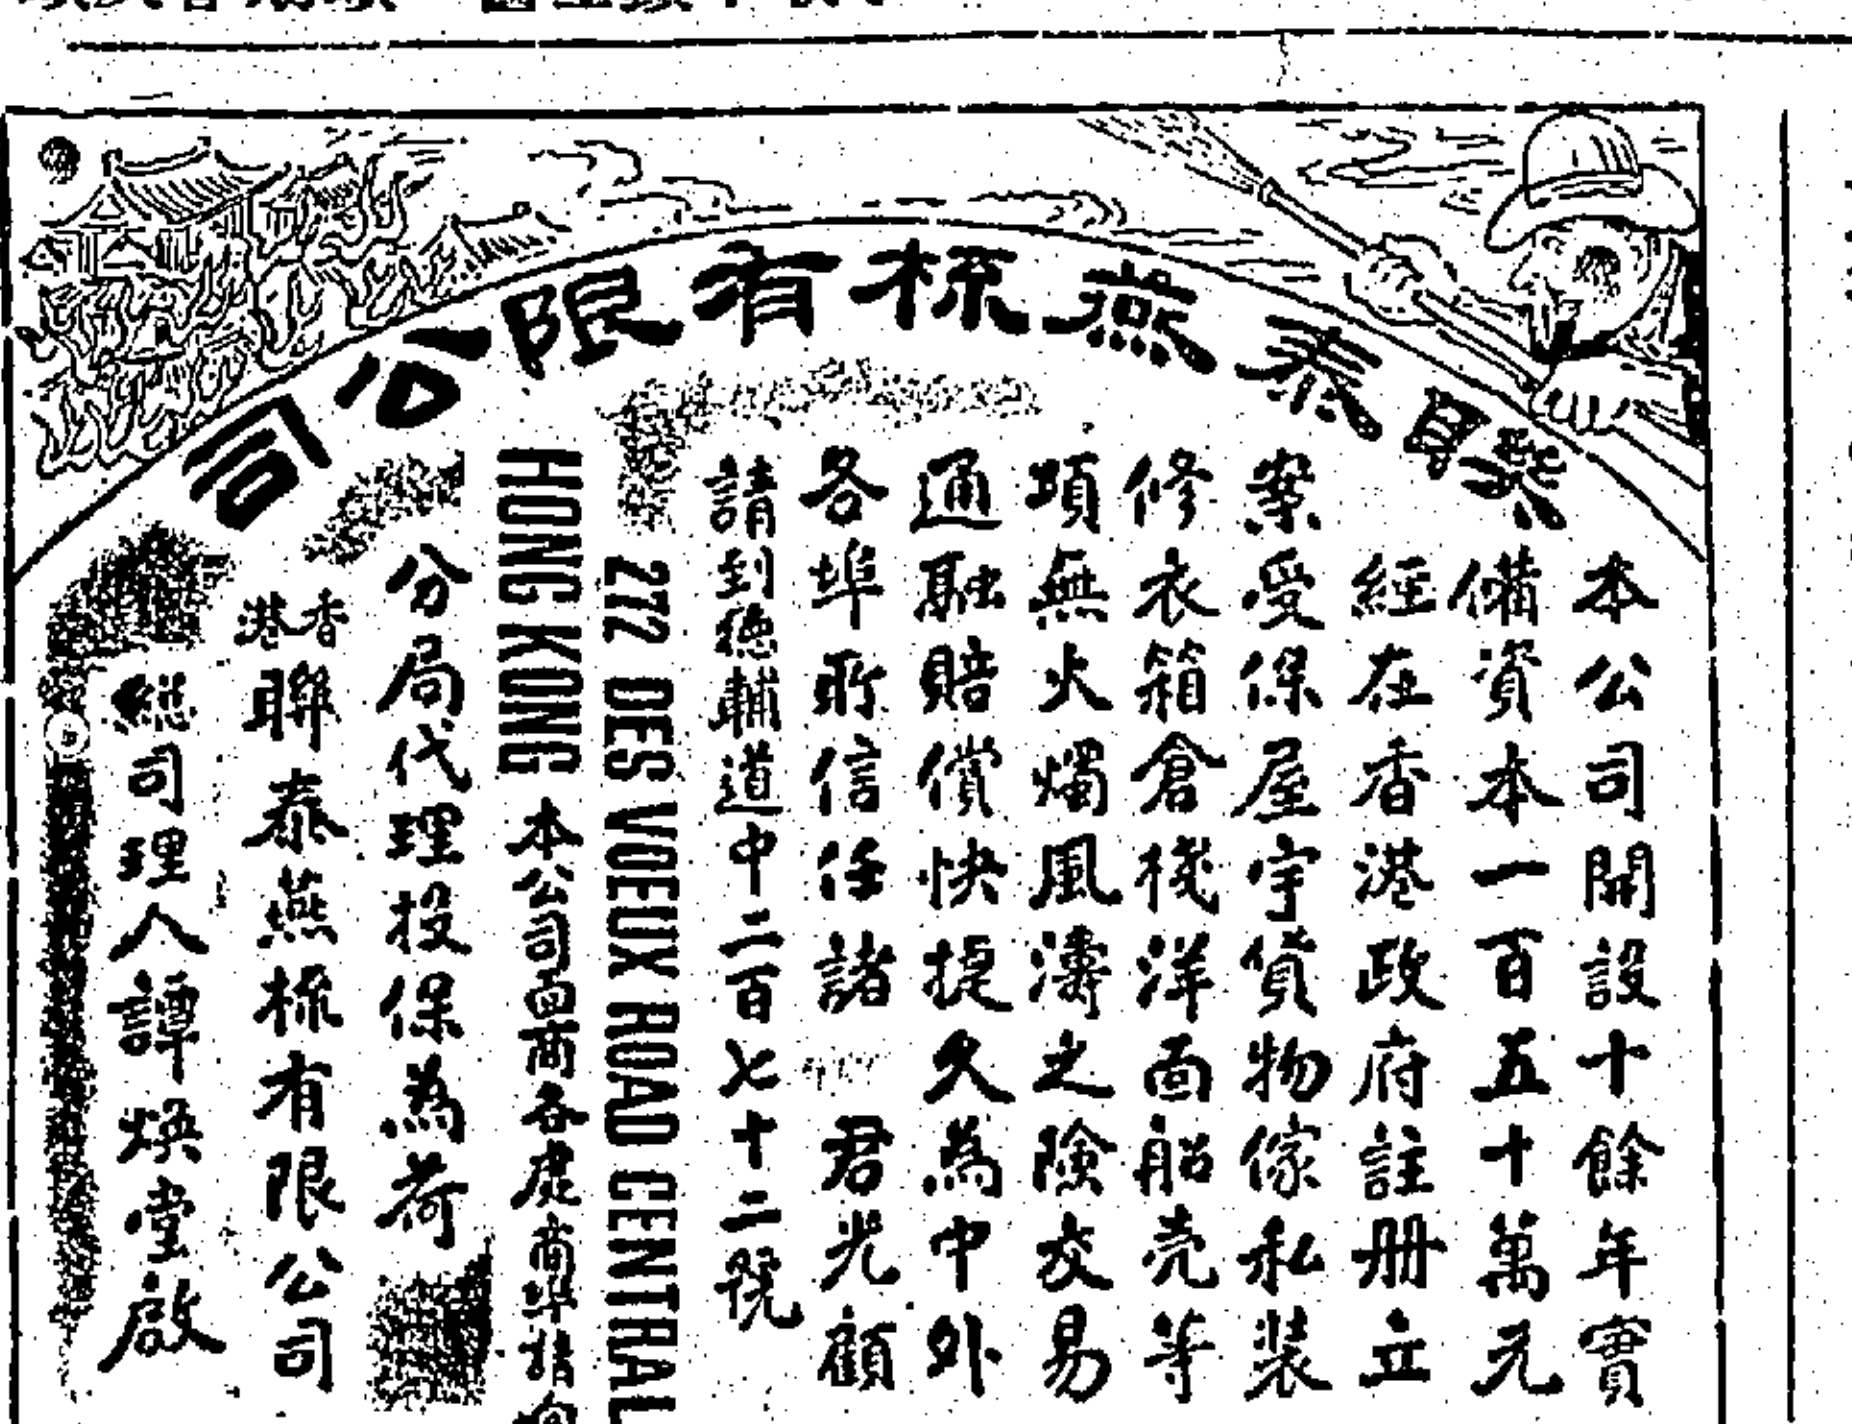 聯泰燕梳有限公司
本公司開設十餘年實
備資本一百五十萬元
經在香港政府註册立
案受保屋宇貨物傢私裝
修衣箱倉棧洋面船壳等
項無火燭風濤之險交易
通融賠償快捷久為中外
各埠所信任諸 君光顧
請到德輔道中二百七十二號
272 DES VOEUX ROAD CENTRAL
HONG KONG 本公司面商各處商埠
分局代理投保為荷
香港聯泰燕梳有限公司
總司理人譚煥堂啟